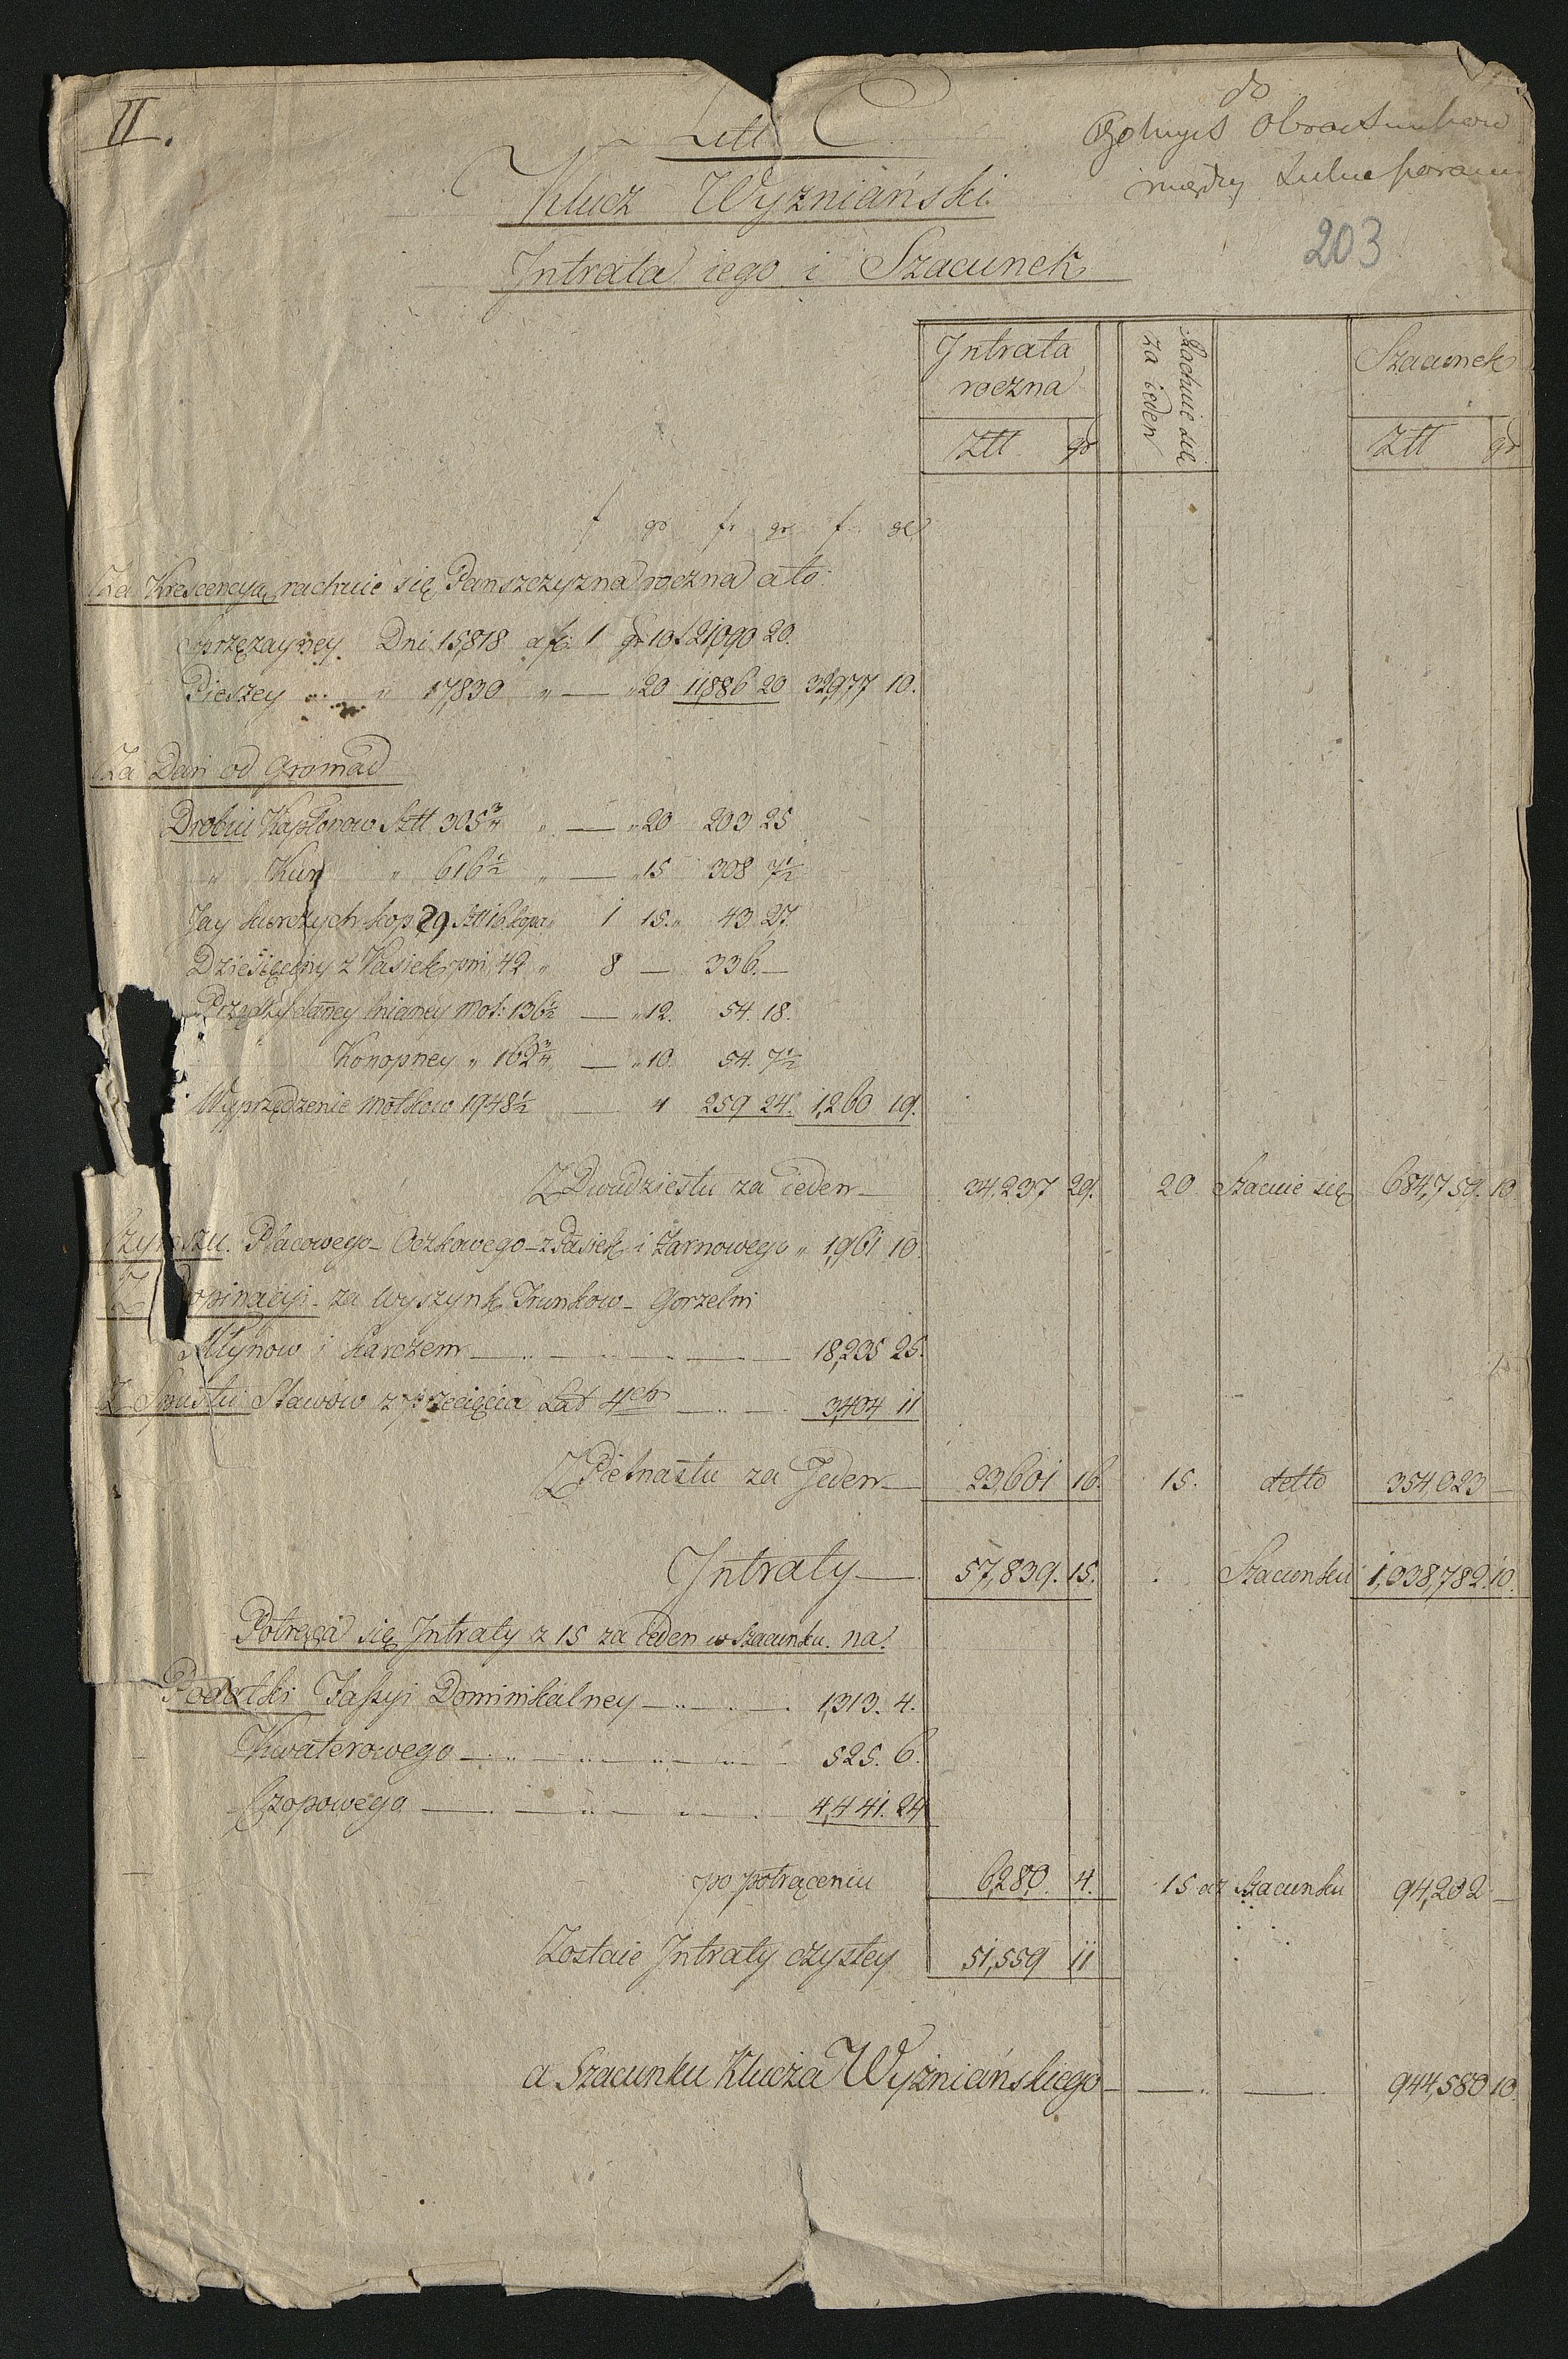 II.
Litt C
do
Obrachunków
między
203
Klucz Wyzniański
Intrata iego i Szacunek
Intrata roczna
Ztt gr
Rachuie się za ieden
Szacunek
Ztt gr
f gr fr gr f gr
Za Krescencyą rachuie się Panszczyzna roczna ato:
Sprzęzayney Dni 15,818 a f 1 gr 10 f 21,090 20.
Pieszey " — " 17,830 " — " 20 11,886 20 32,977 10.
Za Dań od Gromad
Drobiu Kapłonow Sztt 305 3/4 " — " 20 203 25
" Kur " 616 1/2 " — " 15 308 7 1/2
Jay kurzych kop 29 Stt 16 kopa " 1 15 " 43 27.
Dziesięciny z Pasiek pni 42 " 8 — 336. —
Przędzy daney lnianey Mot: 136 1/2 — " 12. 54. 18.
Konopney " 162 3/4 — " 10. 54. 7 1/2
Wyprzędzenie Motkow 1948 1/2 — 4 259 24. 1,260 19.
Z Dwudziestu za ieden — 34,237 29. 20 Szacuie się 684,759. 10
Czynszu. Placowego — Oczkowego — z Pasiek i Żarnowego " 1,961 10
Z Propinacyi — za Wyszynk Trunkow — Gorzelni
Młynow i karczem — 18,235 25.
Z Spustu Stawów z przecięcia Lat 4ch — 3,404 11
Z Pietnastu za Jeden — 23,601 16. 15. detto 354,023 —
Intraty — 57,839. 15. Szacunku 1,038,782. 10.
Potrąca się Intraty z 15 za ieden w Szacunku. na.
Podatki Fassyi Dominikalney — 1,313. 4.
Kwaterowego — 525. 6.
Czopowego — 4,441. 24
po potrąceniu 6,280. 4. 15 az Szacunku 94,202 —
Zostaie Intraty czystey 51,559 11
a Szacunku Klucza Wyżniańskiego — 944,580 10.